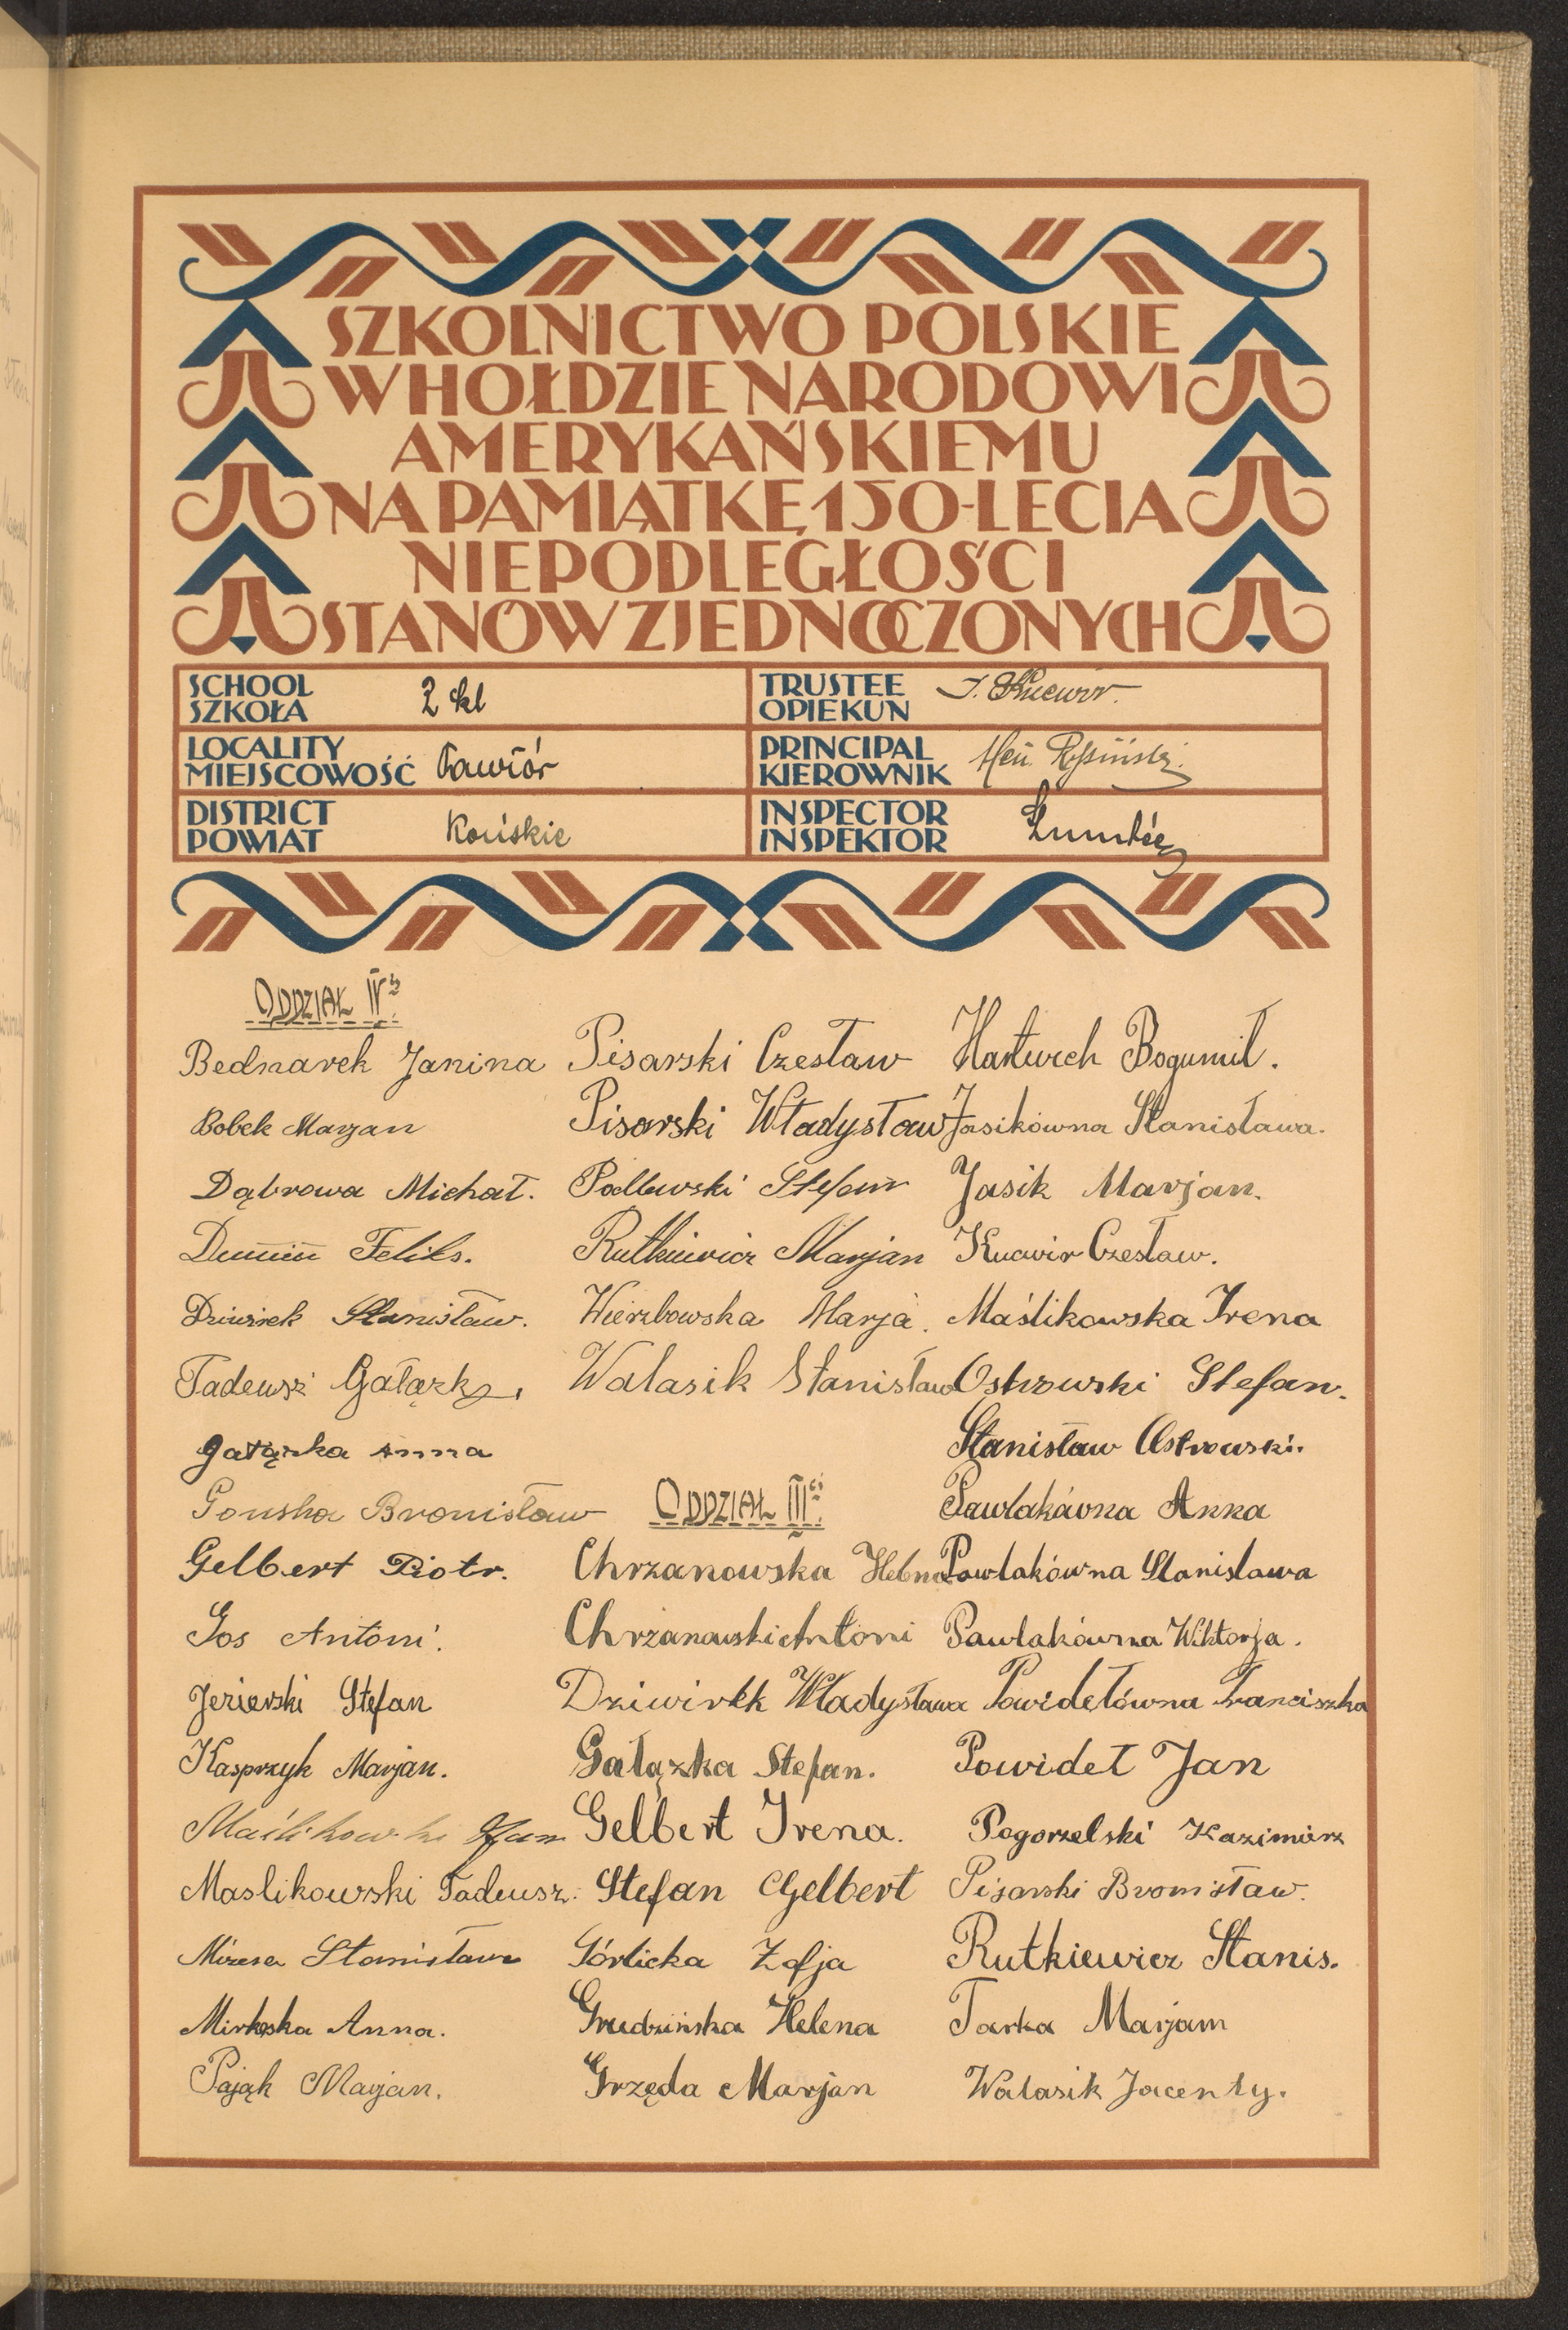 SZKOLNICTWO POLSKIE
W HOŁDZIE NARODOWI
AMERYKAŃSKIEMU
NA PAMIĄTKĘ 150-LECIA
NIEPODLEGŁOŚCI
STANÓW ZJEDNOCZONYCH
SCHOOL
SZKOŁA
2 kl
TRUSTEE
OPIEKUN
LOCALITY
MIEJSCOWOŚĆ
PRINCIPAL
KIEROWNIK
DISTRICT
POWIAT
Końskie
INSPECTOR
INSPEKTOR
ODDZIAŁ IV
Bednarek Janina
Bobek Marjan
Dąbrowa Michał.
Feliks.
Stanisław.
Tadeusz Gałązka
Gałązka Anna
Bronisław
Gelbert Piotr.
Gos Antoni.
Jezierski Stefan
Kasprzyk Marjan.
Maślikowski
Maslikowski Tadeusz.
Stanisław
Anna.
Pająk Marjan.
Pisarski Czesław
Pisarski Władysław
Podlewski Stefan
Rutkiewicz Marjan
Wierzbowska Marja.
Walasik Stanisław
ODDZIAŁ III
Chrzanowska Helena
Chrzanowski Antoni
Władysława
Gałązka Stefan.
Gelbert Irena.
Stefan Gelbert
Górlicka Zofja
Grudzińska Helena
Grzęda Marjan
Hartwich Bogumił.
Jasikówna Stanisława.
Jasik Marjan.
Czesław.
Maślikowska Irena
Ostrowski Stefan.
Stanisław Ostrowski.
Pawlakówna Anna
Pawlakówna Stanisława
Pawlakówna Wiktorja.
Powidełówna Franciszka
Powideł Jan
Pogorzelski Kazimierz
Pisarski Bronisław.
Rutkiewicz Stanis.
Tarka Marjam
Walasik Jacenty.